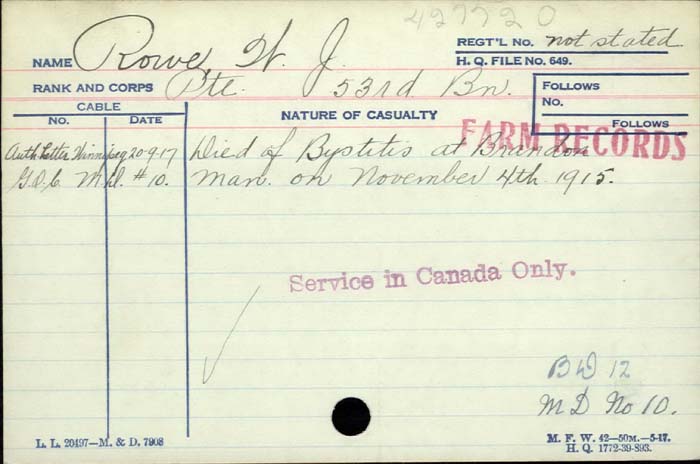 427720
NAME Rowe, W. J. REGT'L NO. not stated
H. Q. FILE NO. 649.
RANK AND CORPS Pte. 53rd Bn.
FOLLOWS
NO.
FOLLOWS
CABLE
NO. DATE
NATURE OF CASUALTY
FARM RECORDS
Auth Letter Winnipeg 20-9-17 Died of Bystitis at Brandon
M.D. #10. Man. on November 4th 1915.
Service in Canada Only.
BW 12
M D No 10.
L. L. 20497—M. & D. 7908
M. F. W. 42—50M.—5-17.
H. Q. 1772-39-893.